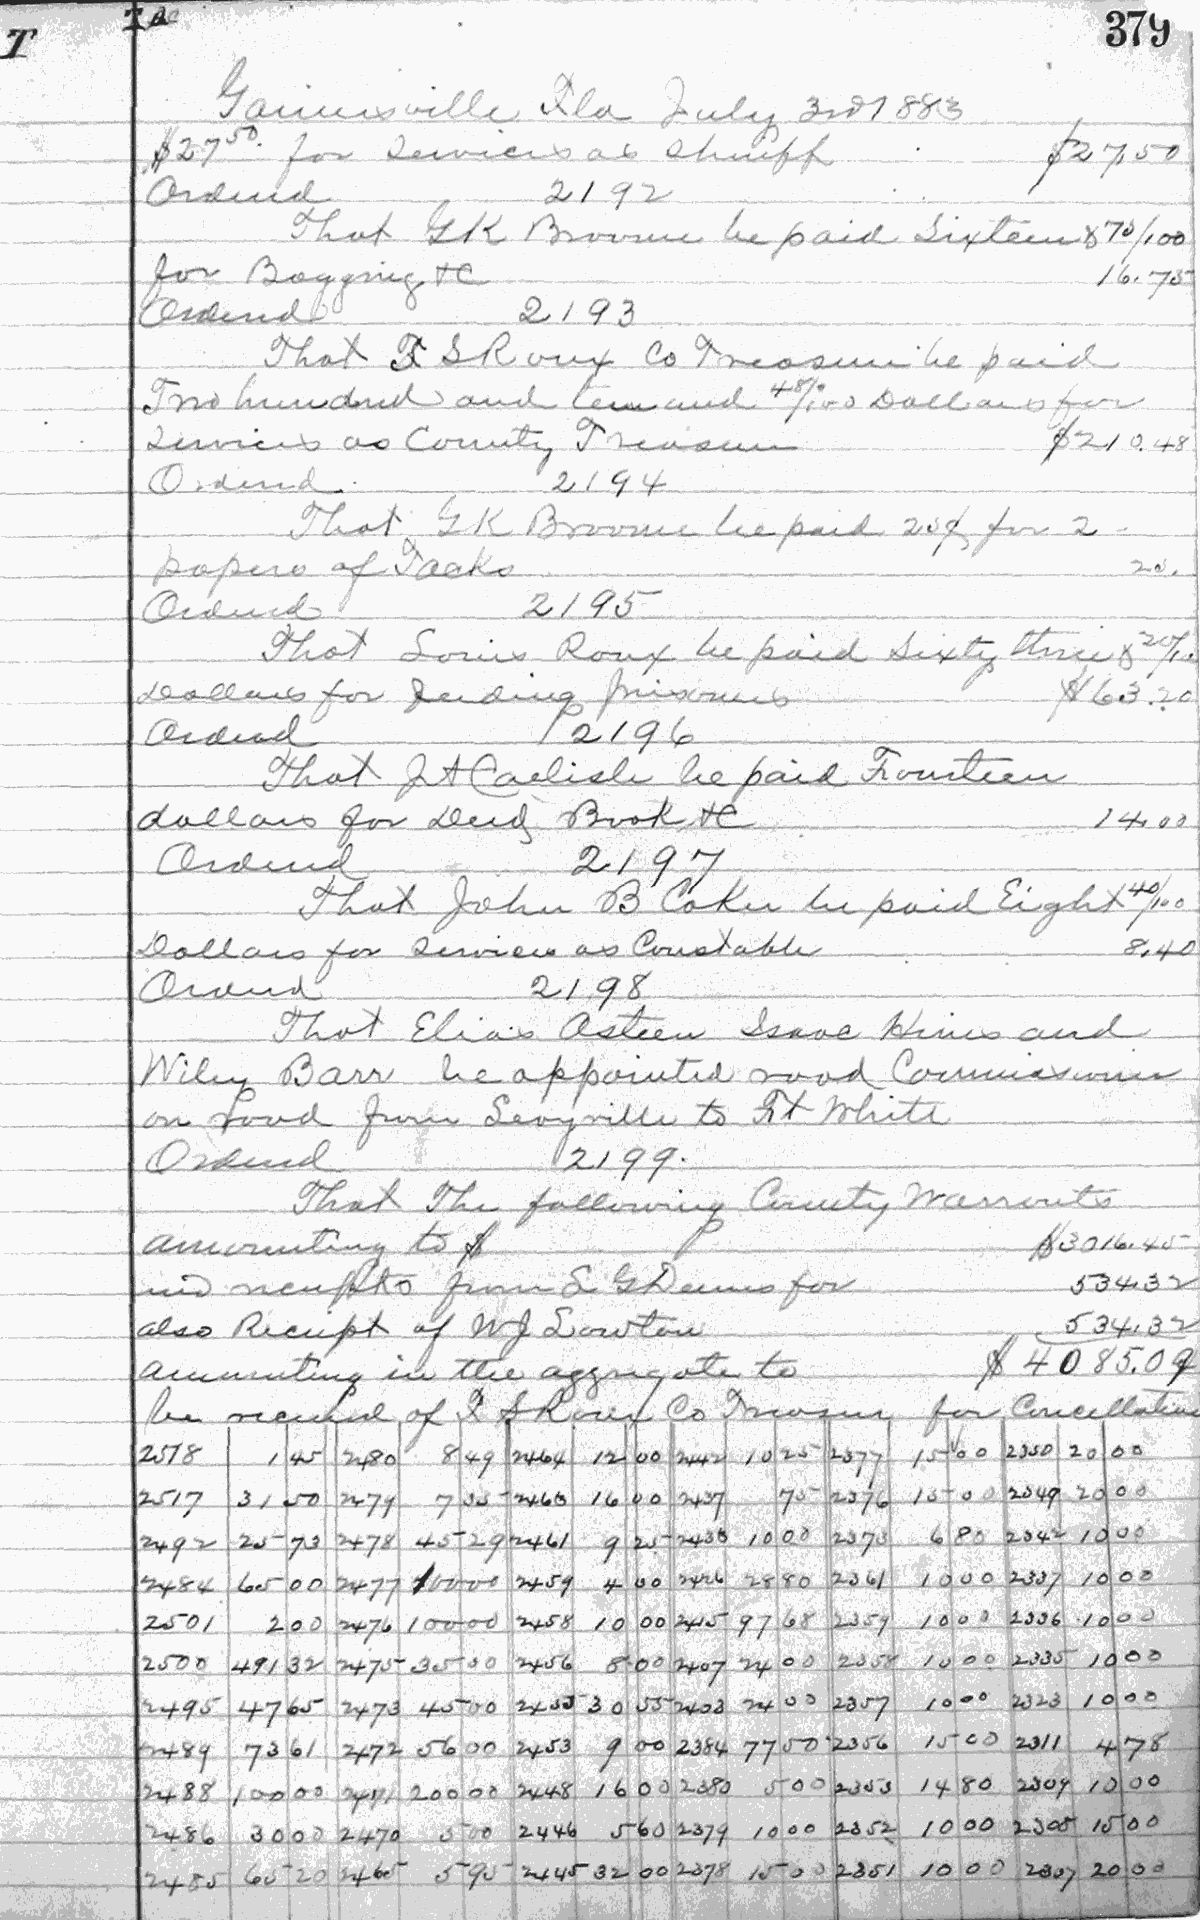 379
T
Gainesville Fla July 3rd 1883
$27 50. for services as Sheriff $27.50
Ordered 2192
That G K Broome be paid Sixteen & 75/100
for Bagging &C 16.75
Ordered 2193
That F S Roux Co Treasurer be paid
Two hundred and ten and 48/100 Dollars for
services as County Treasurer $210.48
Ordered 2194
That G K Broome be paid 20¢ for 2
papers of Tacks 20.
Ordered 2195
That Louis Roux be paid Sixty three & 20/100
Dollars for feeding prisoners $63.20
Ordered 2196
That J A Carlisle be paid Fourteen
dollars for Deed Book &C 14.00
Ordered 2197
That John B Coker be paid Eight 40/100
Dollars for services as Constable 8.40
Ordered 2198
That Elias Asteen Isaac Hines and
Wiley Barr be appointed road Commissioner
on road from Levyville to Ft White
Ordered 2199.
That The following County Warrants
amounting to $ $3016.45
and receipts from L G Dennis for 534.32
also Receipt of W J Lowton 534.32
amounting in the aggregate to $ 4085.09
be received of F S Roux Co Treasurer for Concellation
2518 1 45 2480 8 49 2464 12 00 2442 10 25 2377 15 00 2350 20 00
2517 31 50 2479 7 35 2463 16 00 2437 75 2376 15 00 2349 20 00
2492 25 73 2478 45 29 2461 9 25 2436 10 00 2373 6 80 2342 10 00
2484 65 00 2477 100 00 2459 4 00 2426 28 80 2361 10 00 2337 10 00
2501 2 00 2476 100 00 2458 10 00 2415 97 68 2359 10 00 2336 10 00
2500 491 32 2475 35 00 2456 8 00 2407 24 00 2358 10 00 2335 10 00
2495 47 65 2473 45 00 2455 30 55 2403 24 00 2357 10 00 2323 10 00
2489 73 61 2472 56 00 2453 9 00 2384 77 50 2356 15 00 2311 4 78
2488 100 00 2471 200 00 2448 16 00 2380 5 00 2353 14 80 2309 10 00
2486 30 00 2470 5 00 2446 5 60 2379 10 00 2352 10 00 2305 15 00
2485 65 20 2465 5 95 2445 32 00 2378 15 00 2351 10 00 2307 20 00